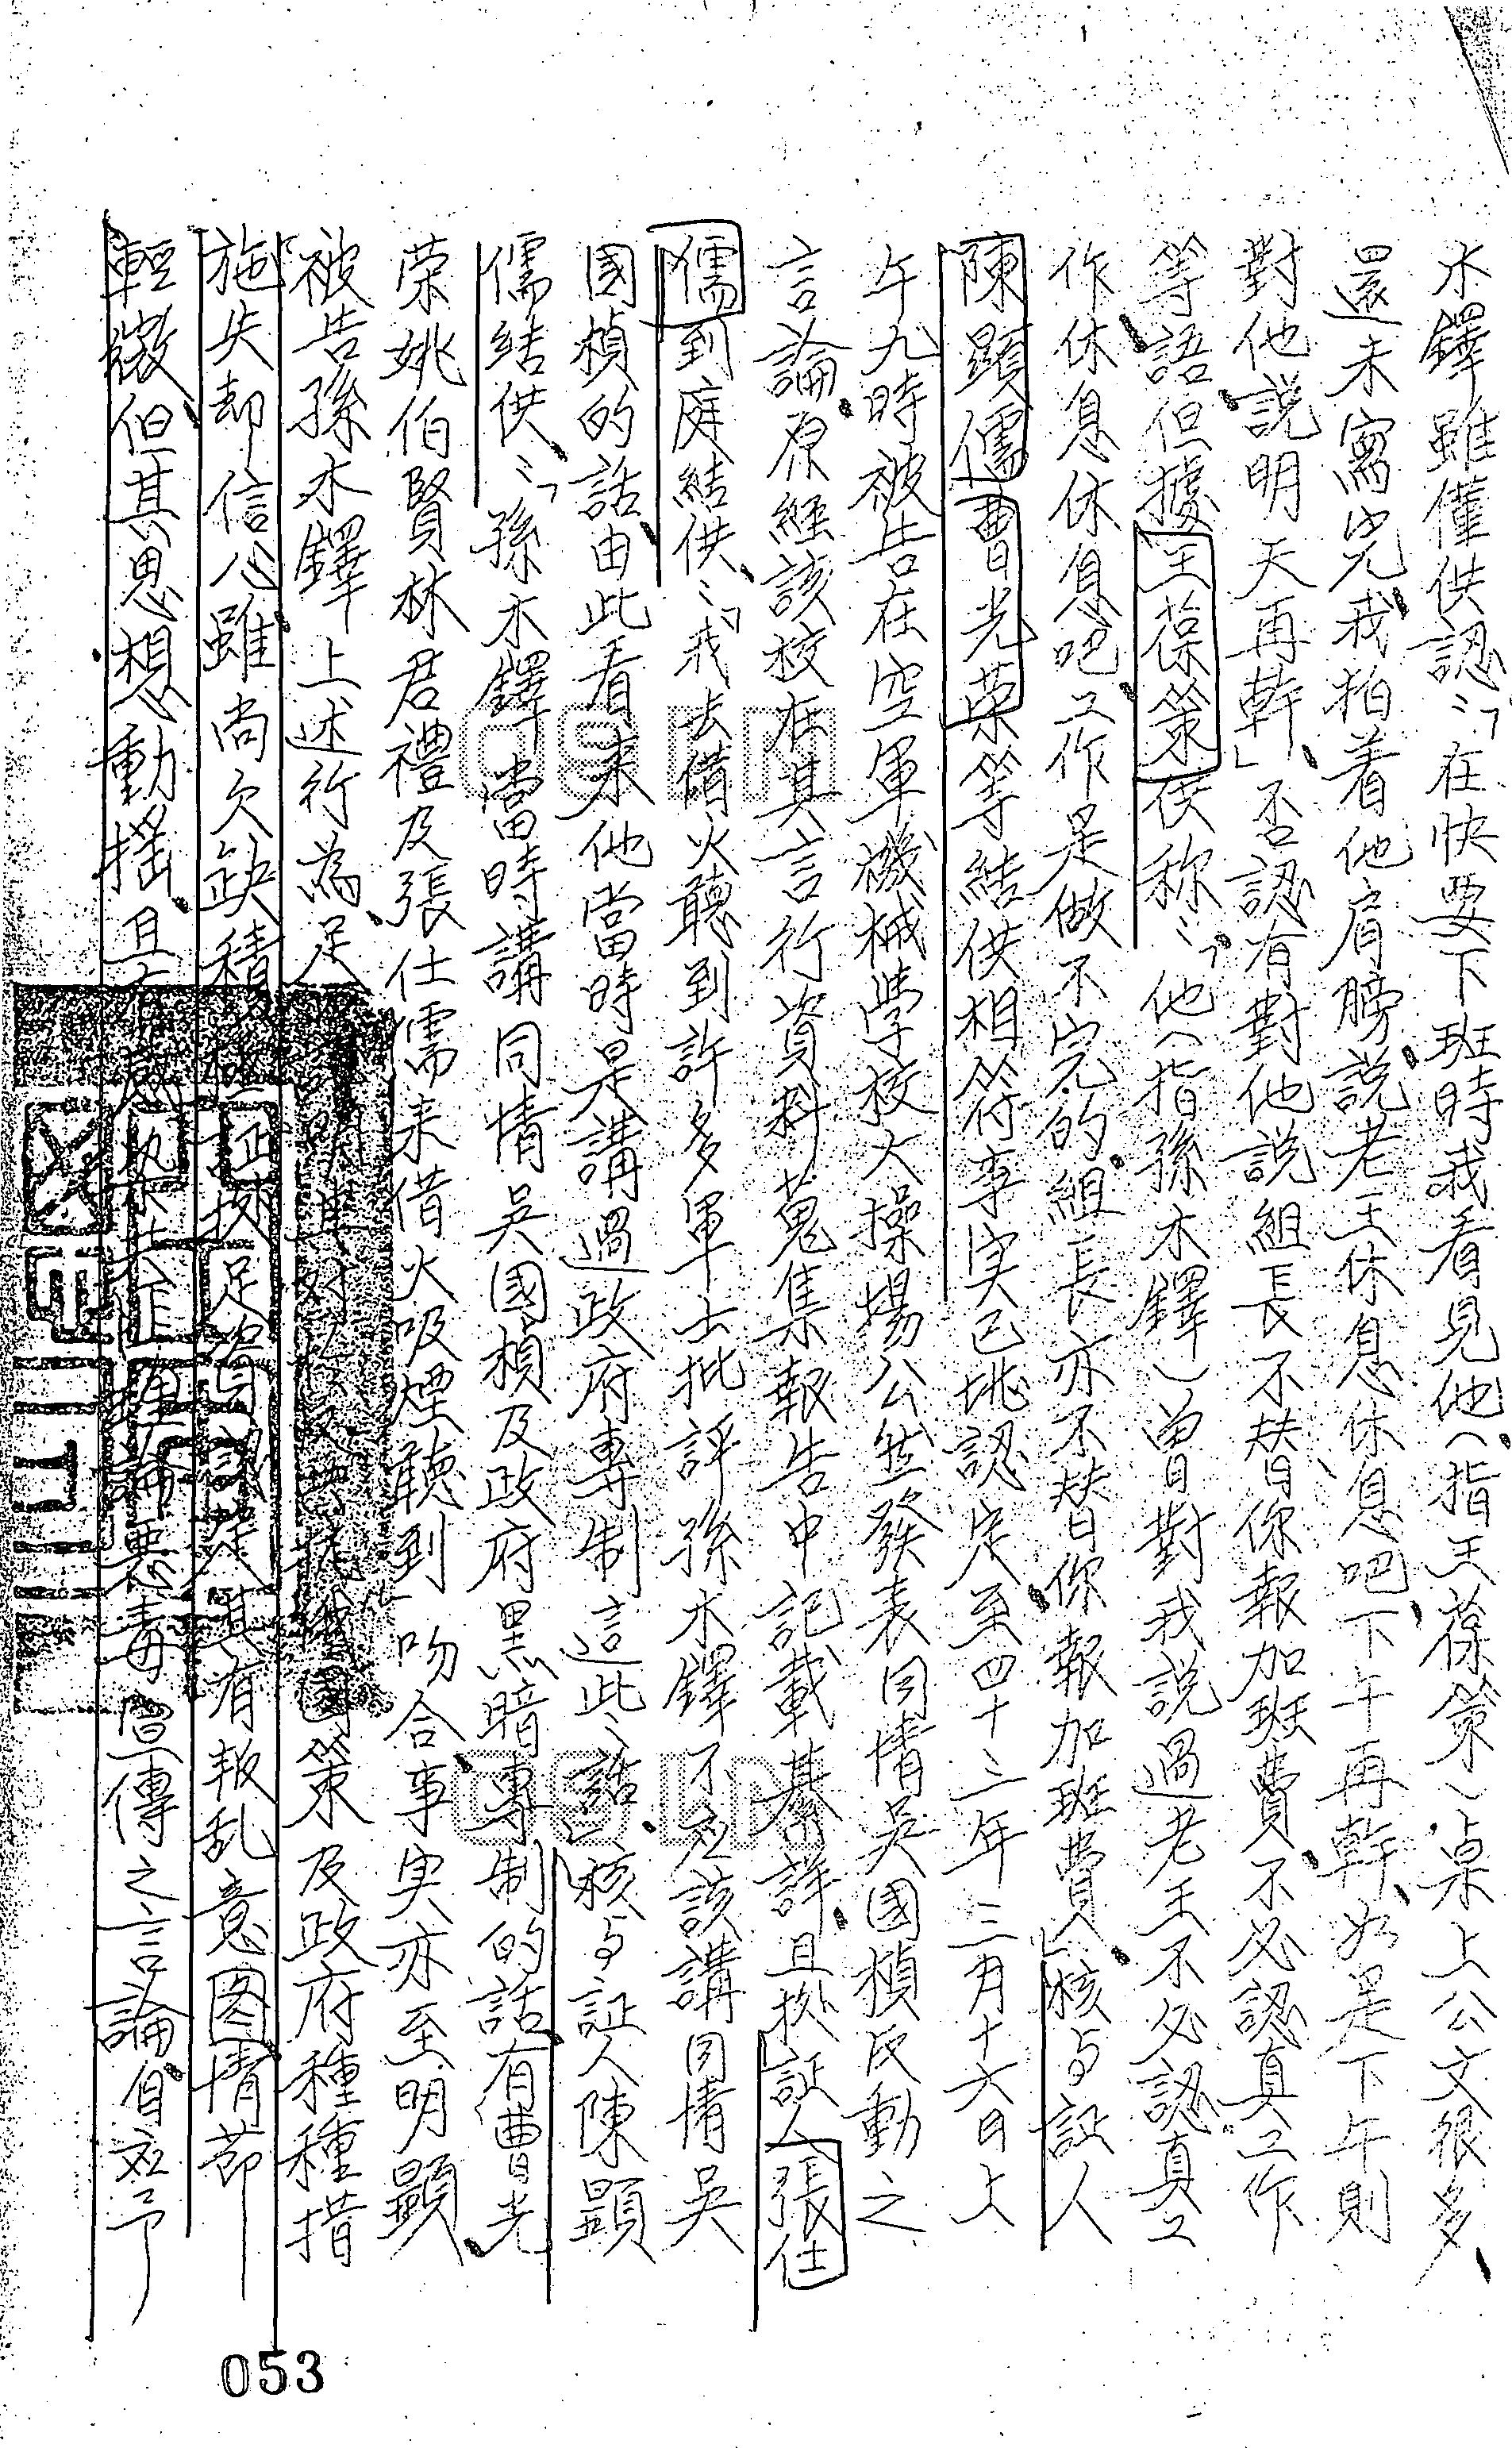 木鐸雖僅供認：「在快要下班時我看見他（指王葆策）桌上公文很多、
還未寫完、我拍着他肩膀說、老王休息休息吧、下午再幹、如是下午則
對他說明天再幹」、否認有對他說組長不替你報加班費、不必認真工作
等語、但據王葆策供称：「他（指孫木鐸）曾對我說過老王不必認真工
作休息休息吧、工作是做不完的、組長亦不替你報加班費」、核与証人
陳顕儒曹光荣等結供相符、事实已堪認定、至四十三年三月十六日上
午九時被告在空軍機械学校大操場公然發表同情吳國楨反動之
言論、原經該校在其言行資料蒐集報告中記載綦詳、且拠証人張仕
儒到庭結供：「我去借火聽到許多軍士批評孫木鐸不应該講同情吳
國楨的話、由此看来他當時是講過政府專制這些話」、核与証人陳顕
儒結供：「孫木鐸當時講同情吳國楨及政府黑暗專制的話、有曹光
荣姚伯賢林君禮及張仕儒来借火吸煙聽到」吻合、事实亦至明顕、
被告孫木鐸上述行為、足 國策及政府種種措
施失却信心、雖尚欠缺積極証拠足資認定其有叛乱意图、情節
輕微、但其思想動搖、且 惡毒宣傳之言論、自应予
053